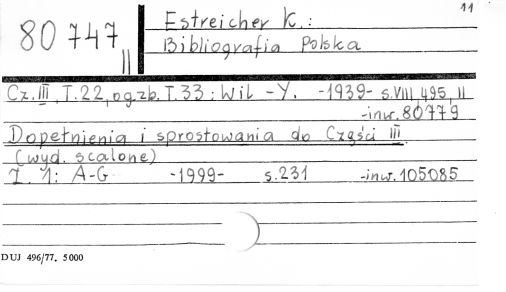 11
80747 II
Estreicher K.:
Bibliografia Polska
Cz. III, T.22, og.zb. T.33: Wil - Y. -1939- s.VIII, 495, II
-inw. 80779
Dopełnienia i sprostowania do Części III
(wyd. scalone)
Z. 1: A-G -1999- s.231 -inw. 105085
DUJ 496/77. 5000